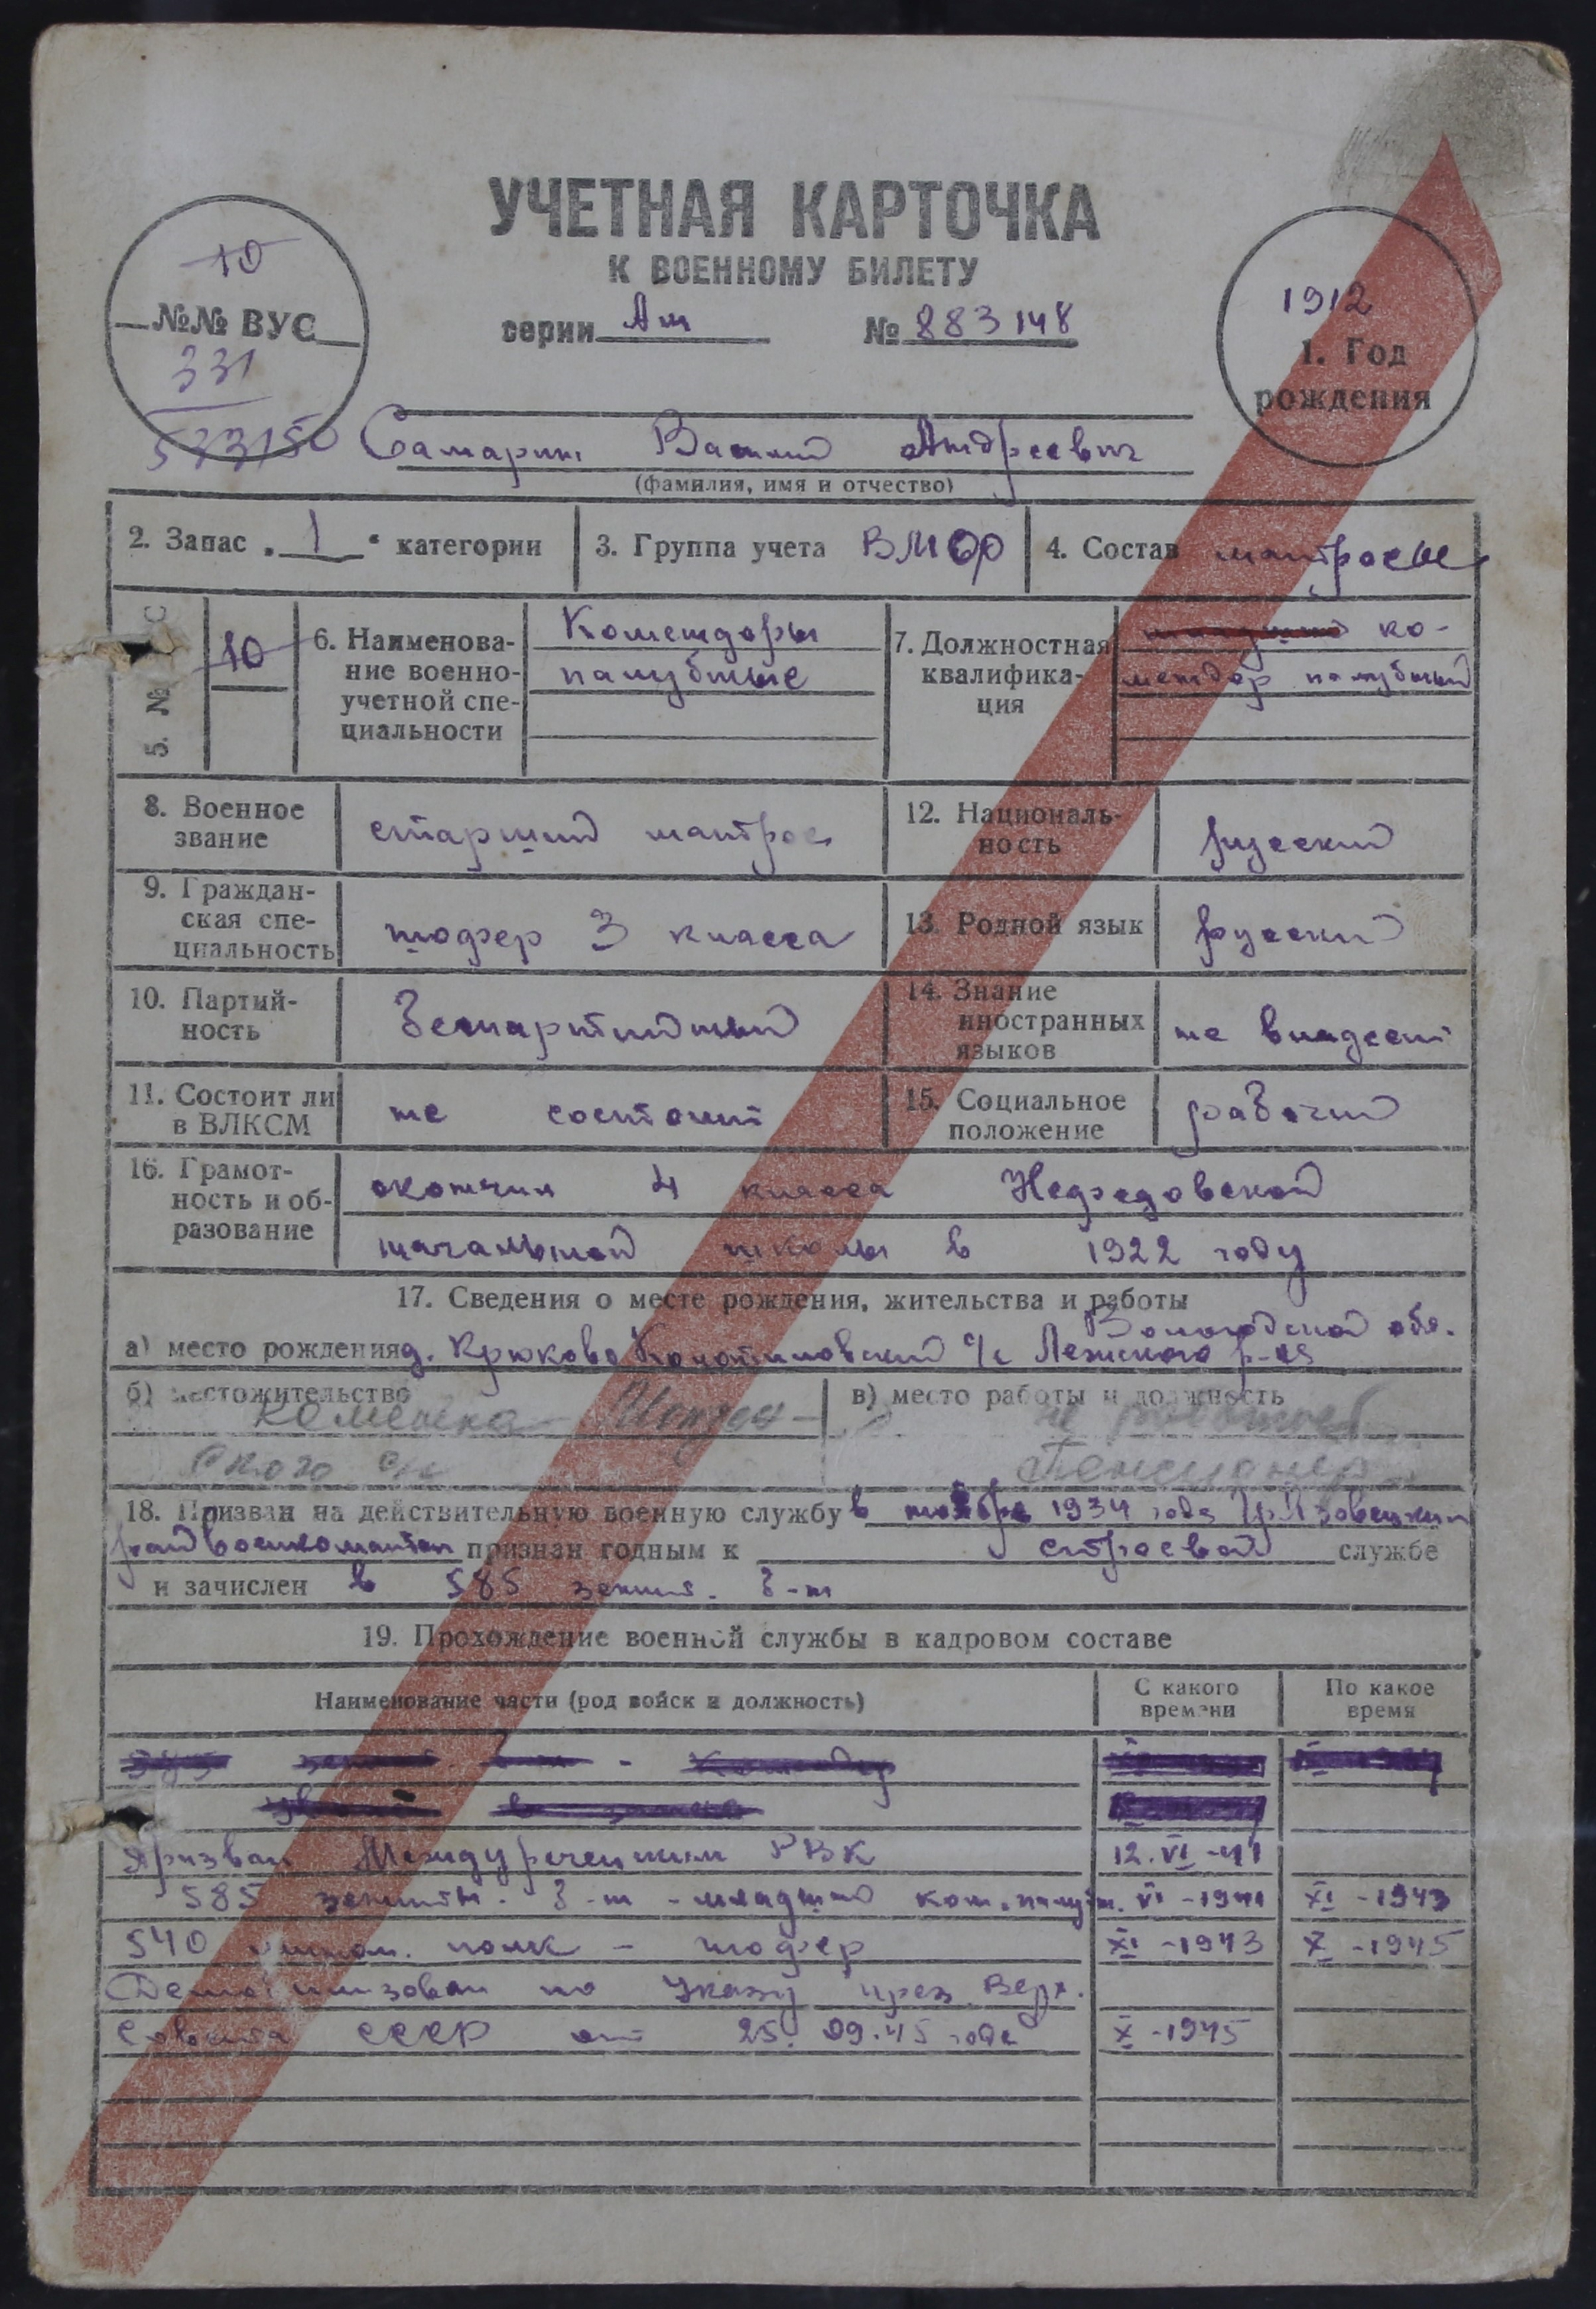 УЧЕТНАЯ КАРТОЧКА
К ВОЕННОМУ БИЛЕТУ
серии Ан № 883148
10
№№ ВУС
331
533150
1912
1. Год
рождения
Самарин Василий Андреевич
(фамилия, имя и отчество)
2. Запас „1“ категории
3. Группа учета ВМФ
4. Состав матросы
5. №
10
6. Наименова-
ние военно-
учетной спе-
циальности
Комендоры
палубные
7. Должностная
квалифика-
ция
ко-
мендор палубный
8. Военное
звание
старший матрос
12. Националь-
ность
русский
9. Граждан-
ская спе-
циальность
шофер 3 класса
13. Родной язык
русский
10. Партий-
ность
Беспартийный
14. Знание
иностранных
языков
не владеет
11. Состоит ли
в ВЛКСМ
не состоит
15. Социальное
положение
рабочий
16. Грамот-
ность и об-
разование
окончил 4 класса
начальной школы в 1922 году
17. Сведения о месте рождения, жительства и работы
Вологодской обл.
а) место рождения д. Крюково с/с Лежского р-на
б) местожительство
Каменка
ского с/с
в) место работы и должность
не работает
Пенсионер
18. Призван на действительную военную службу в ноябре 1934 года Грязовецким
райвоенкоматом признан годным к строевой службе
и зачислен в 585 зенит. б-н
19. Прохождение военной службы в кадровом составе
Наименование части (род войск и должность)
С какого
времени
По какое
время
Призван Междуреченским РВК 12.VI-41
585 зенитн. б-н - младший ком. палубн. VI-1941 XI-1943
540 полк - шофер XI-1943 X-1945
Демобилизован по Указу през. Верх.
Совета СССР от 25.09.45 года X-1945